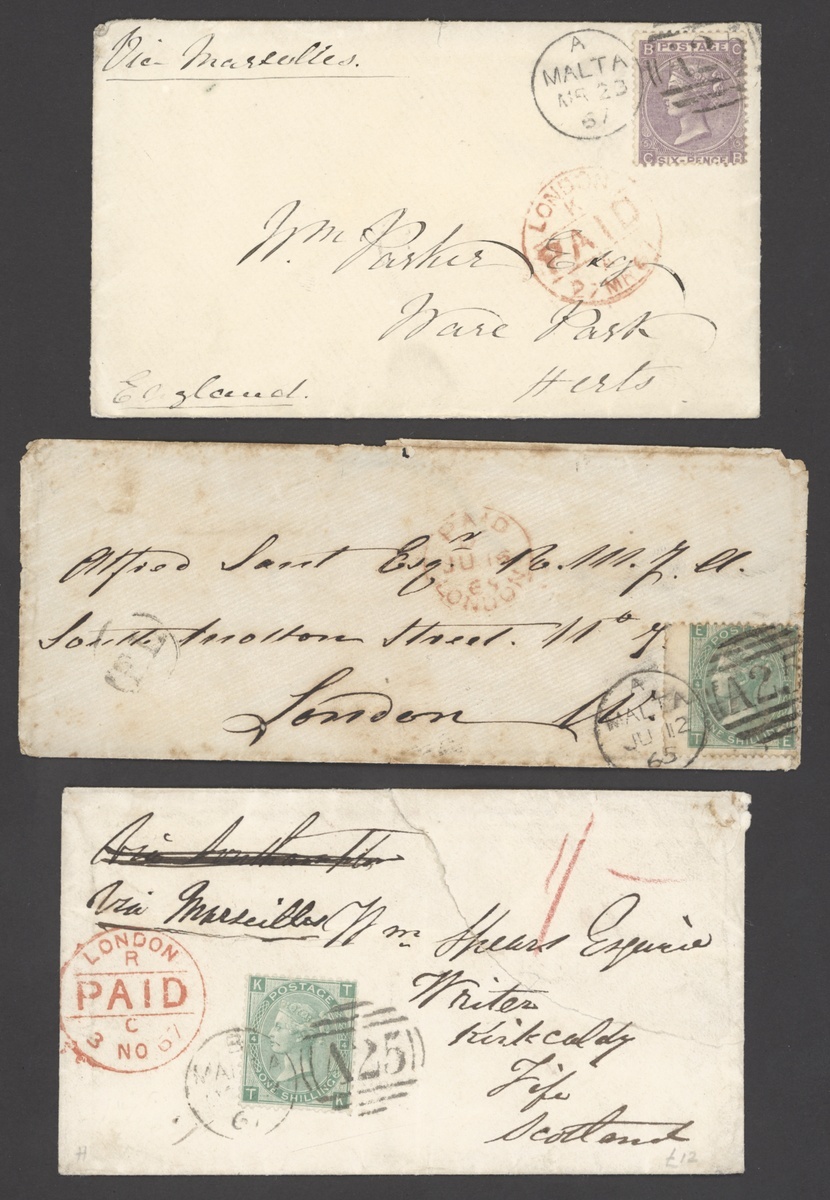 Via Marseilles.
A
MALTA
MR 23
67
B POSTAGE C
C SIX-PENCE B
LONDON
K
PAID
27 MR
Wm Parker Esq
Ware Park
Herts
England.
PAID
JU 16
65
LONDON
Alfred Sant Esqr
South Molton Street. No 7.
London W.
PL
A
MALTA
JU 12
65
E POSTAGE
4
A25
T ONE SHILLING E
Via Southampton
Via Marseilles
1/-
Wm Spears Esquire
Writer
Kirkcaldy
Fife
Scotland
LONDON
R
PAID
C
3 NO 67
K POSTAGE T
4 4
T ONE SHILLING K
B
MALTA
67
A25
H
£12